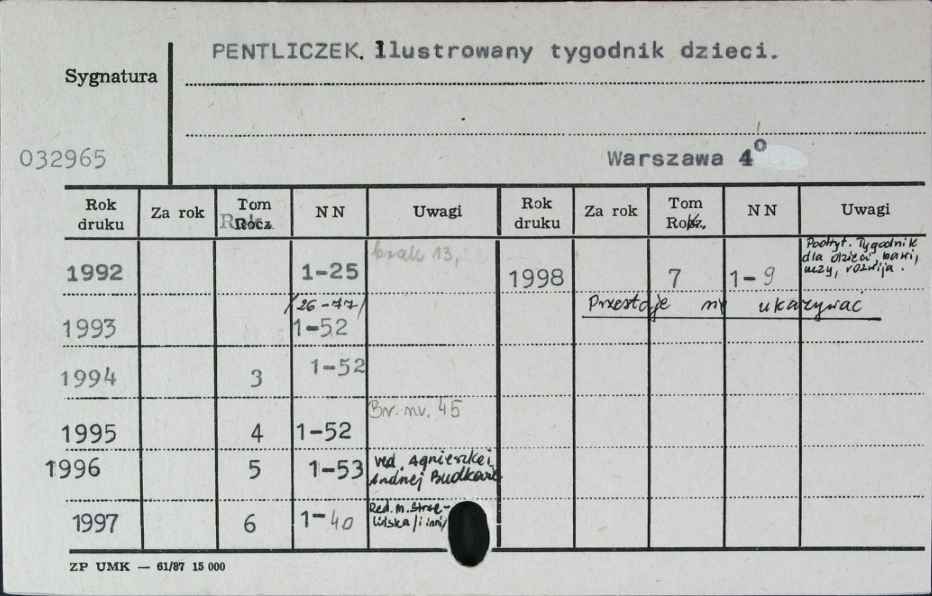 PENTLICZEK. Ilustrowany tygodnik dzieci.
Sygnatura
032965
Warszawa 4°
Rok druku Za rok Tom Rocz. NN Uwagi Rok druku Za rok Tom Rocz. NN Uwagi
1992 1-25 brak 13, 1998 7 1-9 Podtyt. Tygodnik
dla dzieci bawi,
uczy, rozwija.
/26-77/ Przestaje się ukazywać
1993 1-52
1994 3 1-52
Br. nr. 45
1995 4 1-52
1996 5 1-53 red. Agnieszka i
Andrzej
1997 6 1-40 Red. M.
/i inni/
ZP UMK — 61/87 15 000